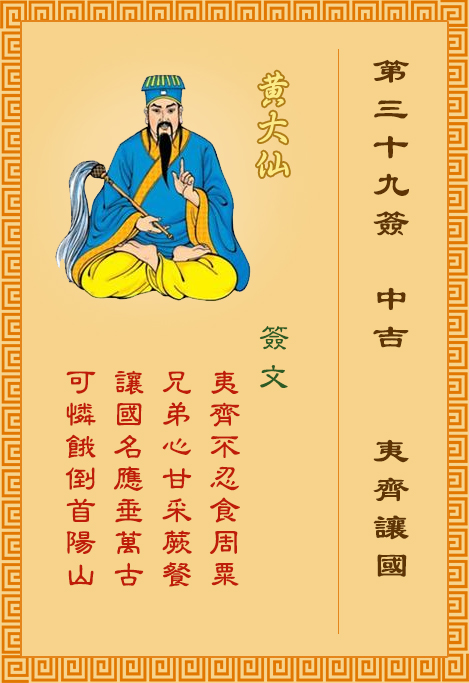 第三十九簽 中吉 夷齊讓國
黃大仙
簽文
夷齊不忍食周粟
兄弟心甘采蕨餐
讓國名應垂萬古
可憐餓倒首陽山